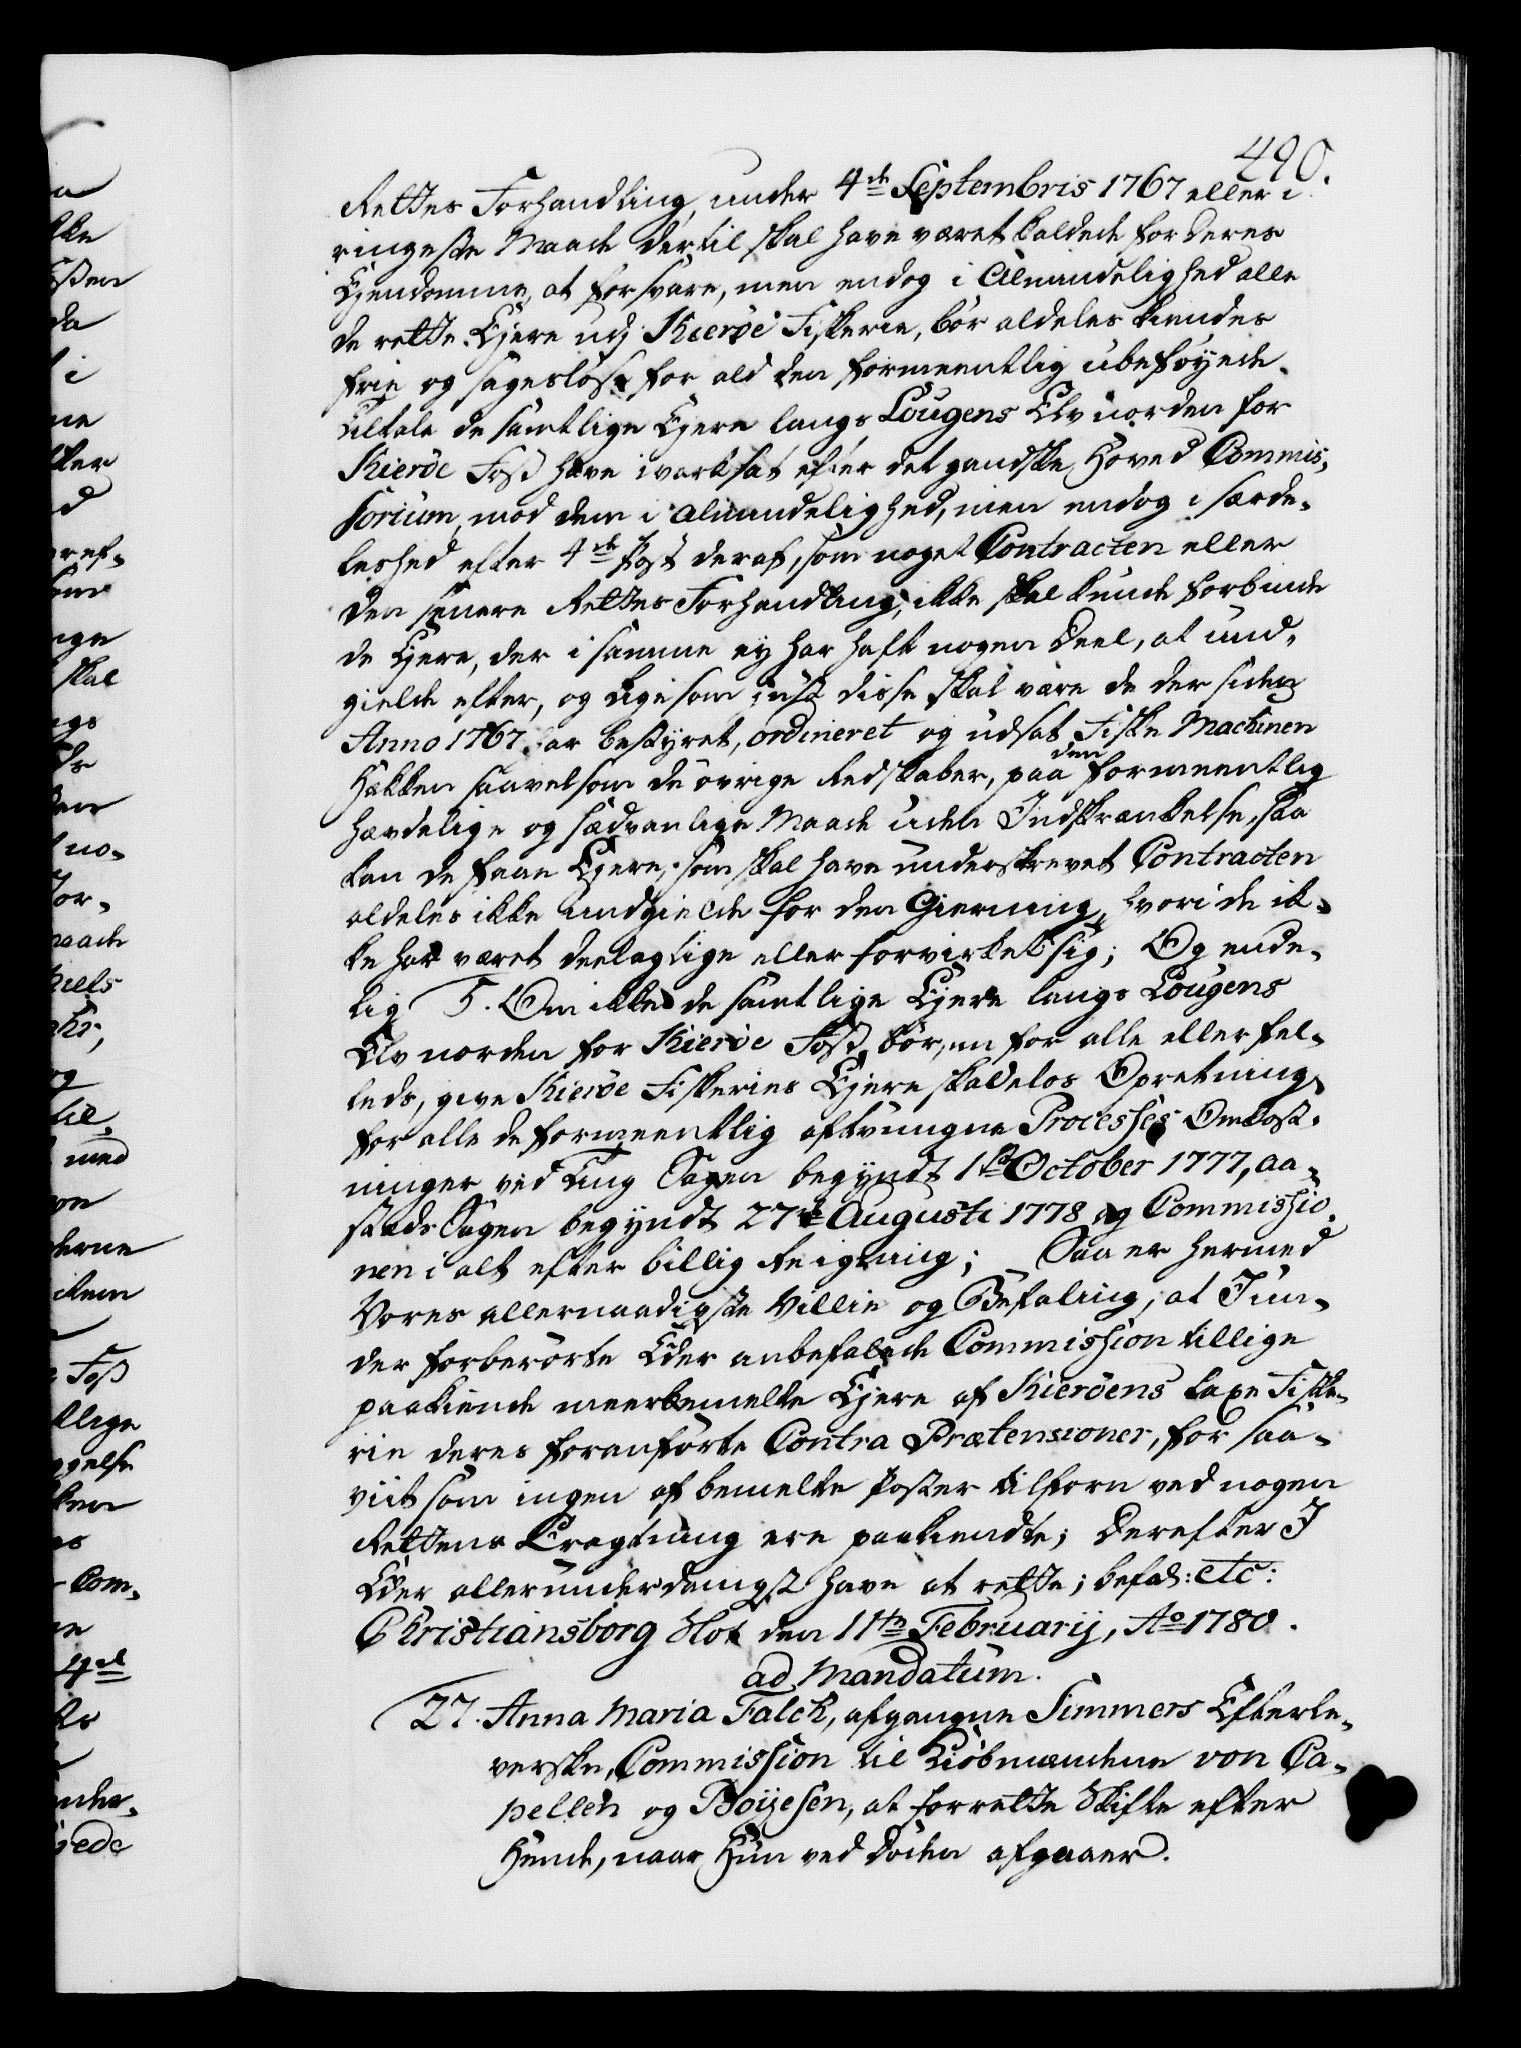 490.
Rettes Forhandling, under 4de Septembris 1767 eller i
ringeste Maade dertil skal have været kaldede for deres
Ejendomme, at forsvare, men endog i Almindelighed alle
de rette Ejere udj Kierøe Fiskerie, bør aldeles kiendes
frie og sagesløse for ald den formeentlig ubeføyede
tiltale de samtlige Ejere langs Lougens Elv norden for
Kierøe Foss have iverksat efter det gandske Hoved Commis,
sorium, mod dem i Almindelighed, men endog i særde,
leshed efter 4de Post deraf, som noget Contracten eller
den senere Rettes Forhandling, ikke skal kunde forbinde
de Ejere, der i samme ey har haft nogen Deel, at und,
gielde efter, og ligesom just disse skal være de der siden
Anno 1767 har bestyret, ordineret og udsat Fiske Machinen
Hækken saavelsom de øvrige Redskaber, paa den formeentlig
hævdelige og sædvanlige Maade uden Indskrænkelse, saa
kan de faae Ejere, som skal have underskrevet Contracten
aldeles ikke undgielde for den Gierning, hvori de ik,
ke har været deelagtige eller forvirket sig; Og ende,
lig 5. Om ikke de samtlige Ejere langs Lougens
Elv norden for Kierøe Foss, bør, een for alle eller fel,
leds, give Kierøe Fiskeries Ejere skadeløs Opretning
for alle de formeentlig aftvungne Processes Omkost,
ninger ved Ting Sagen begyndt 1ste October 1777, Aa,
stæds Sagen begyndt 27de Augusti 1778 og Commissio,
nen i alt efter billig Reigning; Saa er hermed
Vores allernaadigste Villie og Befaling, at I un,
der forberørte Eder anbefalede Commission tillige
paakiende meerbemelte Ejere af Kierøens laxe Fiske,
rie deres foranførte Contra Prætensioner, for saa,
viit som ingen af bemelte Poster tilforn ved nogen
Rettens Eragtning ere paakiendte; Derefter I
Eder allerunderdanigst have at rette; befal: etc:
Christiansborg Slot den 11te Februarij, Ao 1780.
ad Mandatum.
27. Anna Maria Falck, afgangne Simmers Efterle,
verske, Commission til Kiøbmændene von Ca,
pellen og Boijesen, at forrette Skifte efter
Hende, naar Hun ved Døden afgaaer.